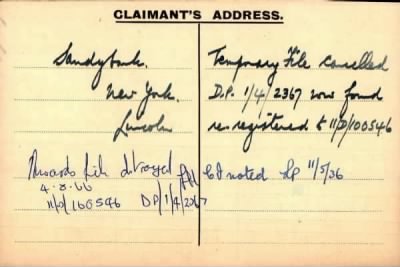 CLAIMANT'S ADDRESS.
Sandybank.
New York.
Lincoln
Temporary File cancelled
D.P. 1/4/2367 now found
re-registered to 11/D/100546
Awards file destroyed
4.8.66
11/D/100546 DP/1/4/2367
CI noted
11/5/36